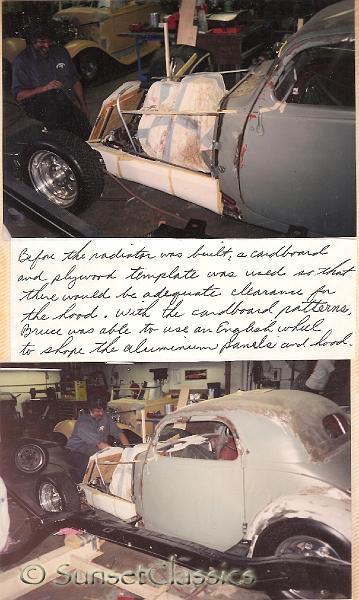 Before the radiator was built, a cardboard
and plywood template was used so that
there would be adequate clearance for
the hood. With the cardboard patterns,
Bruce was able to use an English whell
to shape the aluminium panels and hood.
© SunsetClassics